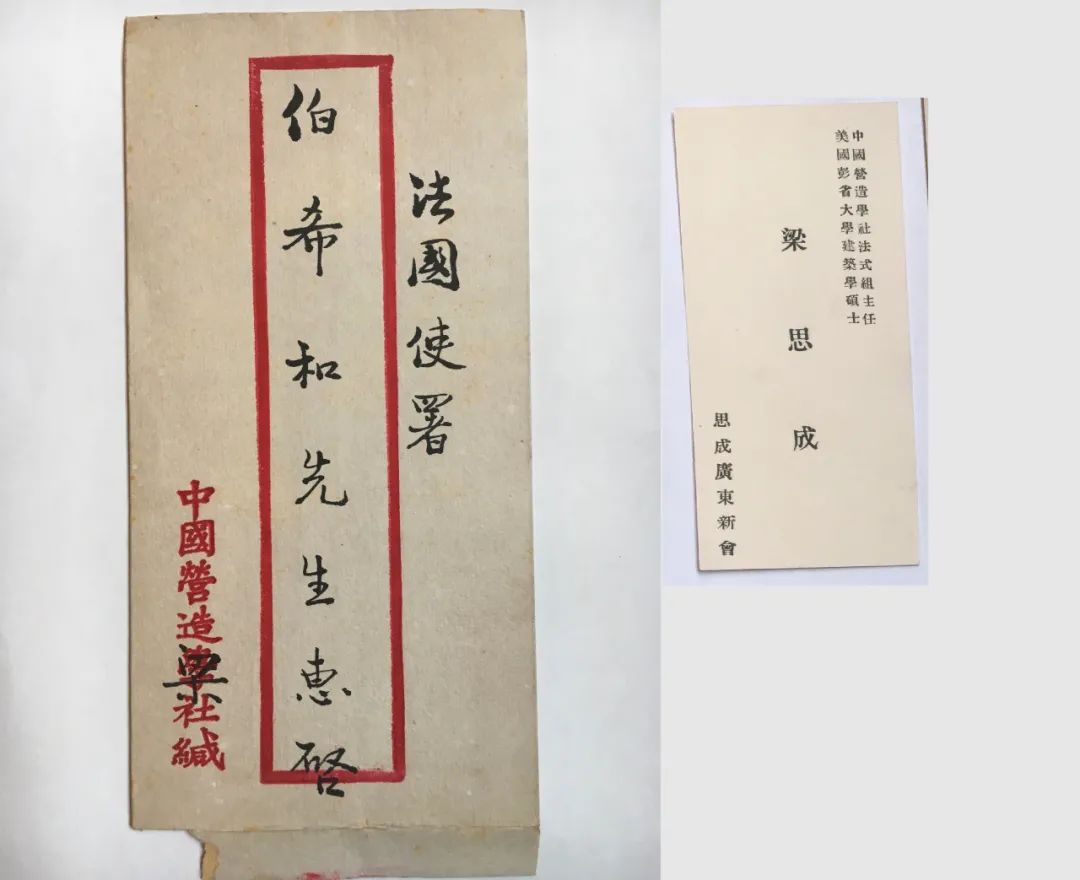 法國使署
伯希和先生惠啓
中國營造學社緘
梁
中國營造學社法式組主任
美國彭省大學建築學碩士
梁思成
思成廣東新會